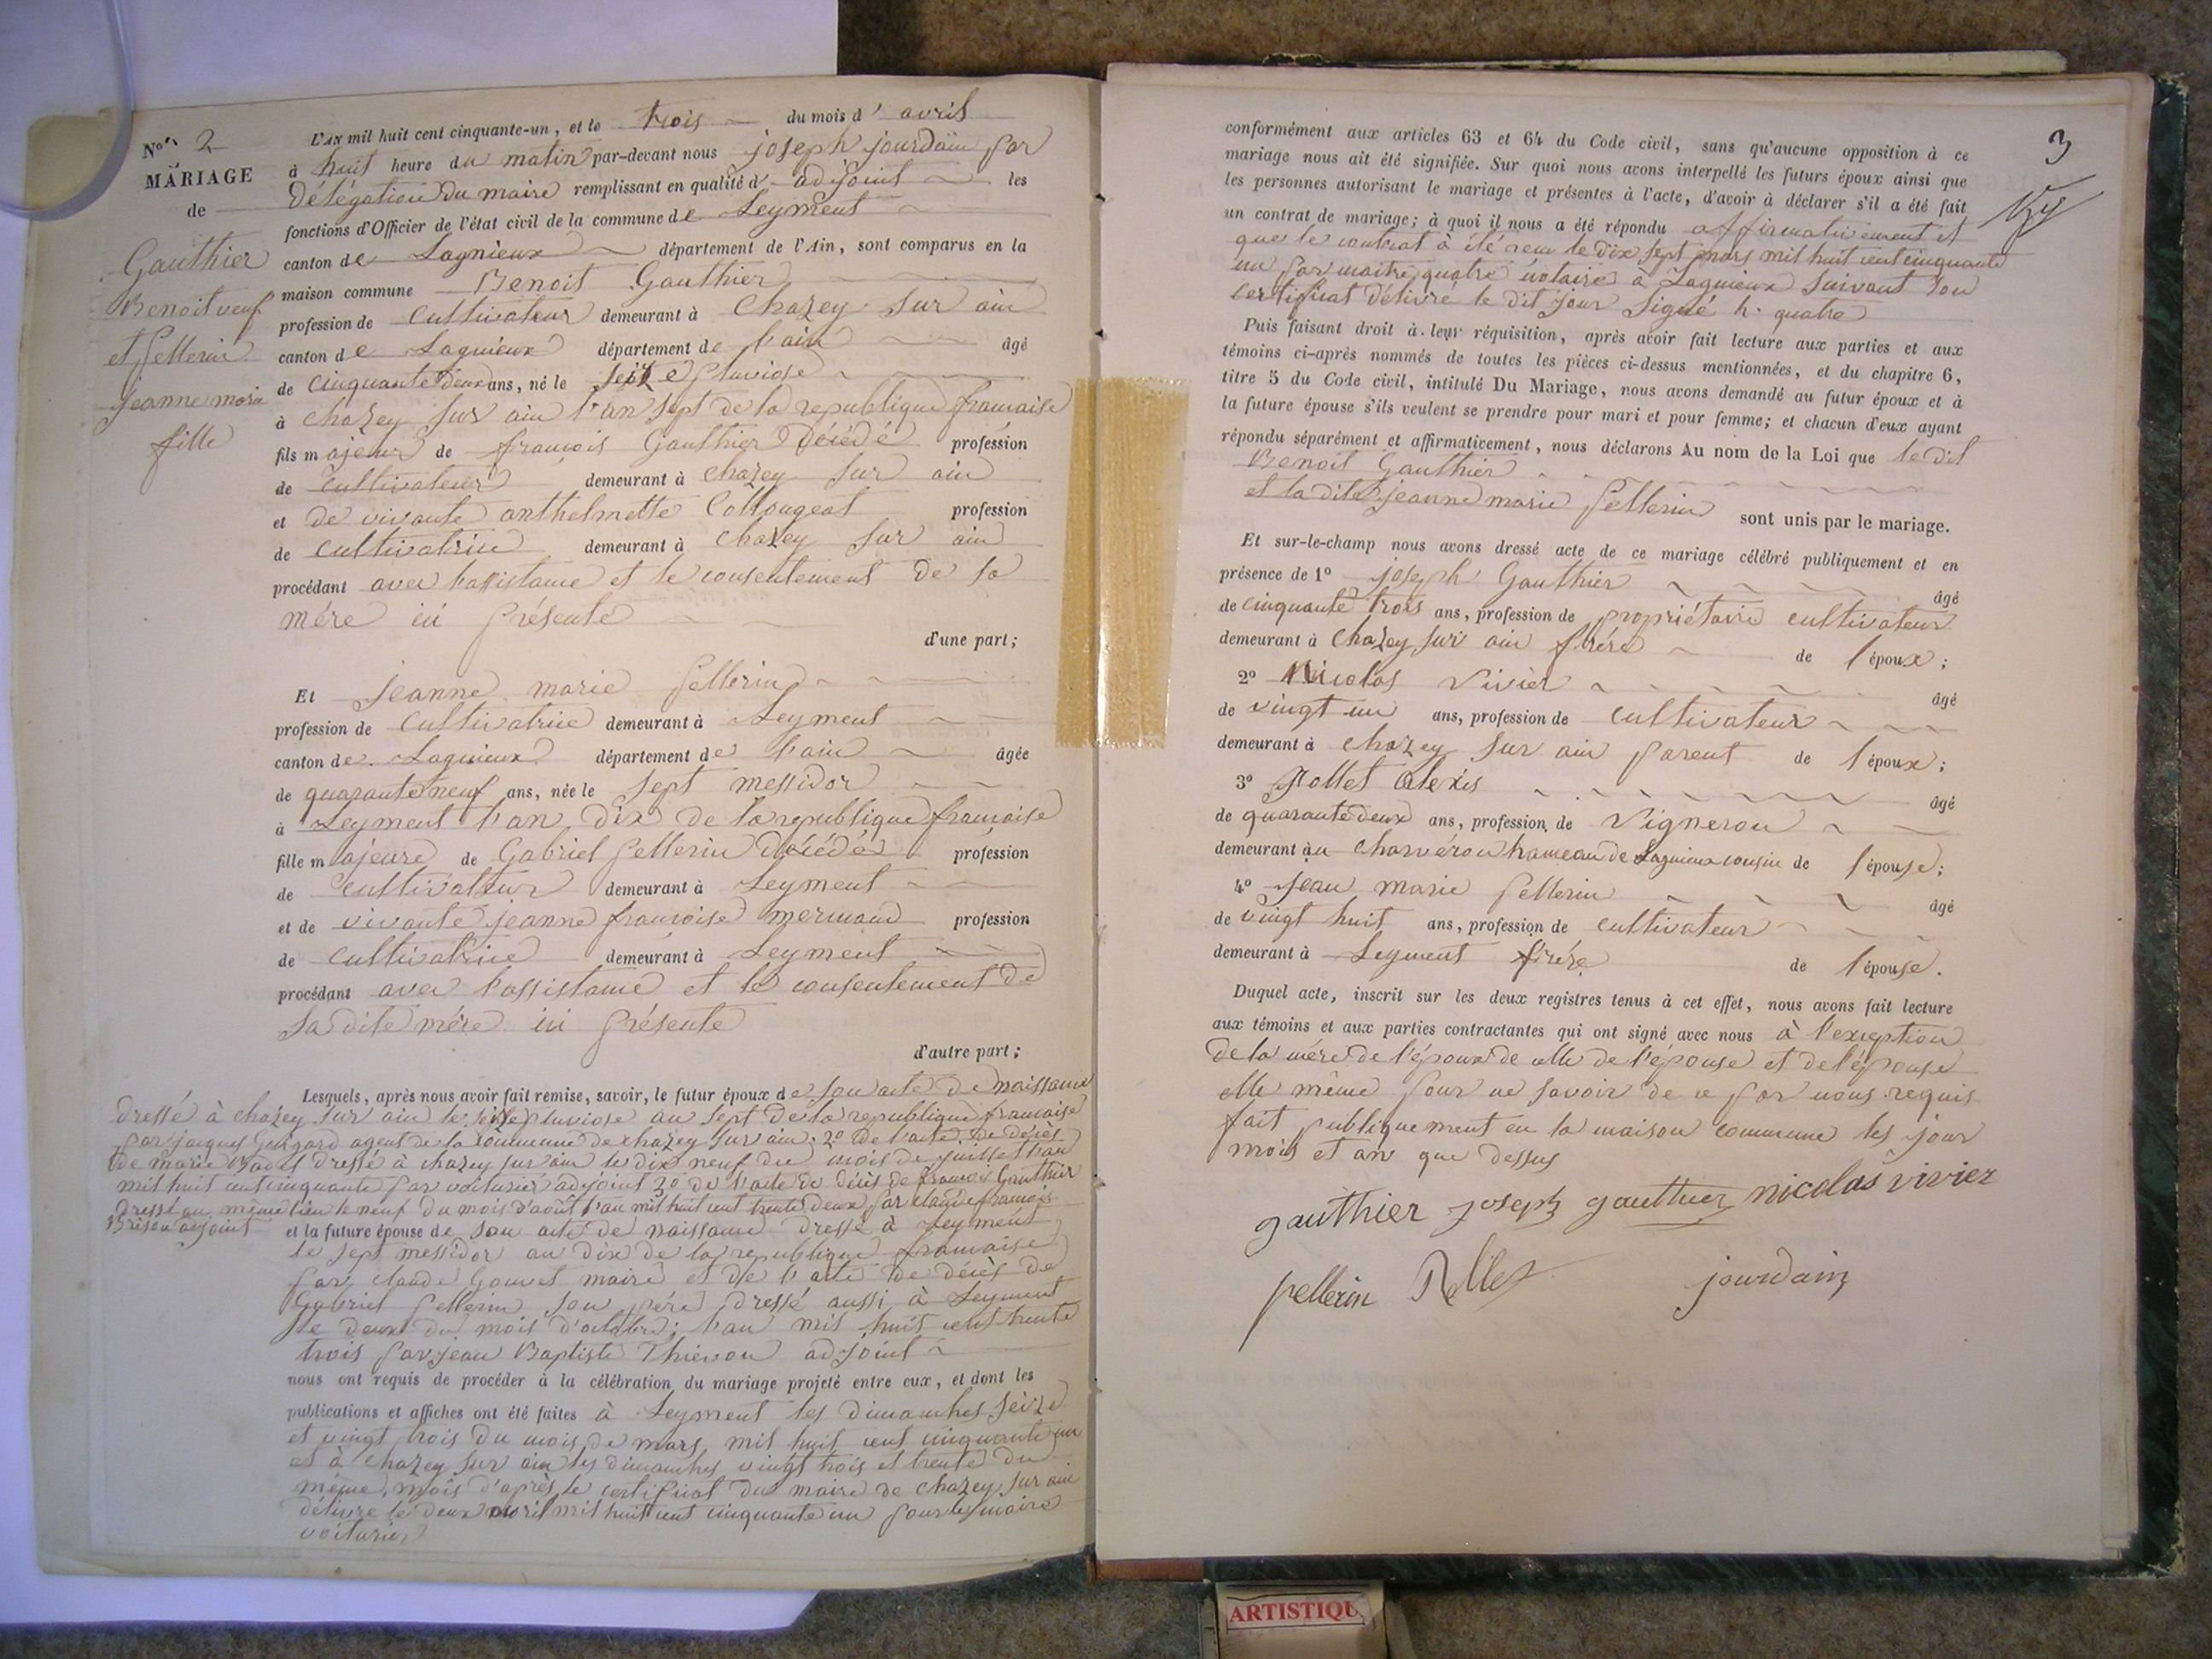 No. 2
MARIAGE
de
Gauthier
Benoit veuf
et Pellerin
jeanne marie
fille
L'AN mil huit cent cinquante-un, et le trois du mois d' avril
à huit heure du matin par-devant nous joseph jourdain par
délégation du maire remplissant en qualité d' adjoint les
fonctions d'Officier de l'état civil de la commune de Leyment
canton de Lagnieux département de l'Ain, sont comparus en la
maison commune Benoit Gauthier
profession de cultivateur demeurant à Chazey sur ain
canton de Lagnieux département de l'ain âgé
de cinquante deux ans, né le seize pluviose
à chazey sur ain l'an sept de la republique française
fils majeur de françois Gauthier décédé profession
de cultivateur demeurant à chazey sur ain
et de vivante anthelmette Collougeat profession
de cultivatrice demeurant à chazey sur ain
procédant avec l'assistance et le consentement de sa
mère ici présente
d'une part;
Et jeanne marie pellerin
profession de cultivatrice demeurant à Leyment
canton de Lagnieux département de l'ain âgée
de quarante neuf ans, née le sept messidor
à Leyment l'an dix de la republique française
fille majeure de Gabriel pellerin décédé profession
de cultivateur demeurant à Leyment
et de vivante jeanne françoise mermand profession
de cultivatrice demeurant à Leyment
procédant avec l'assistance et le consentement de
sa dite mére ici présente
d'autre part;
Lesquels, après nous avoir fait remise, savoir, le futur époux de son acte de naissance
dressé à chazey sur ain le seize pluviose an sept de la republique française
par jacques agent de la commune de chazey sur ain; 2o de l'acte de décès
de marie dressé à chazey sur ain le dix neuf du mois de juillet l'an
mil huit cent cinquante par voiturier adjoint 3o de l'acte de décès de françois Gauthier
dressé au même lieu le neuf du mois d'août l'an mil huit cent trente deux par claude françois
adjoint et la future épouse de son acte de naissance dressé à Leyment
le sept messidor an dix de la republique française
par claude maire et de l'acte de décès de
Gabriel pellerin son pére dressé aussi à Leyment
le deux du mois d'octobre; l'an mil huit cent trente
trois par jean Baptiste Thievon adjoint
nous ont requis de procéder à la célébration du mariage projeté entre eux, et dont les
publications et affiches ont été faites à Leyment les dimanches seize
et vingt trois du mois de mars mil huit cent cinquante un
et à chazey sur ain les dimanches vingt trois et trente du
même mois d'après le certificat du maire de chazey sur ain
délivré le deux avril mil huit cent cinquante un pour le maire
voiturier
3
conformément aux articles 63 et 64 du Code civil, sans qu'aucune opposition à ce
mariage nous ait été signifiée. Sur quoi nous avons interpellé les futurs époux ainsi que
les personnes autorisant le mariage et présentes à l'acte, d'avoir à déclarer s'il a été fait
un contrat de mariage; à quoi il nous a été répondu affirmativement et
que le contrat à été recu le dix sept mars mil huit cent cinquante
un par maitre quatre notaire à Lagnieux suivant son
certificat délivré le dit jour signé h. quatre
Puis faisant droit à leur réquisition, après avoir fait lecture aux parties et aux
témoins ci-après nommés de toutes les pièces ci-dessus mentionnées, et du chapitre 6,
titre 5 du Code civil, intitulé Du Mariage, nous avons demandé au futur époux et à
la future épouse s'ils veulent se prendre pour mari et pour femme; et chacun d'eux ayant
répondu séparément et affirmativement, nous déclarons Au nom de la Loi que le dit
Benoit Gauthier
et la dite jeanne marie pellerin sont unis par le mariage.
Et sur-le-champ nous avons dressé acte de ce mariage célébré publiquement et en
présence de 1o joseph Gauthier âgé
de cinquante trois ans, profession de propriétaire cultivateur
demeurant à chazey sur ain frére de l'époux;
2o Nicolas vivier âgé
de vingt un ans, profession de cultivateur
demeurant à chazey sur ain parent de l'époux;
3o Rollet alexis âgé
de quarante deux ans, profession de vigneron
demeurant au charvéron hameau de Lagnieux cousin de l'épouse;
4o jean marie pellerin âgé
de vingt huit ans, profession de cultivateur
demeurant à Leyment frére de l'épouse.
Duquel acte, inscrit sur les deux registres tenus à cet effet, nous avons fait lecture
aux témoins et aux parties contractantes qui ont signé avec nous à l'exception
de la mére de l'époux de celle de l'épouse et de l'épouse
elle même pour ne savoir de ce par nous requis
fait publiquement en la maison commune les jour
mois et an que dessus
gauthier joseph gauthier nicolas vivier
pellerin Rollet jourdain
ARTISTIQU